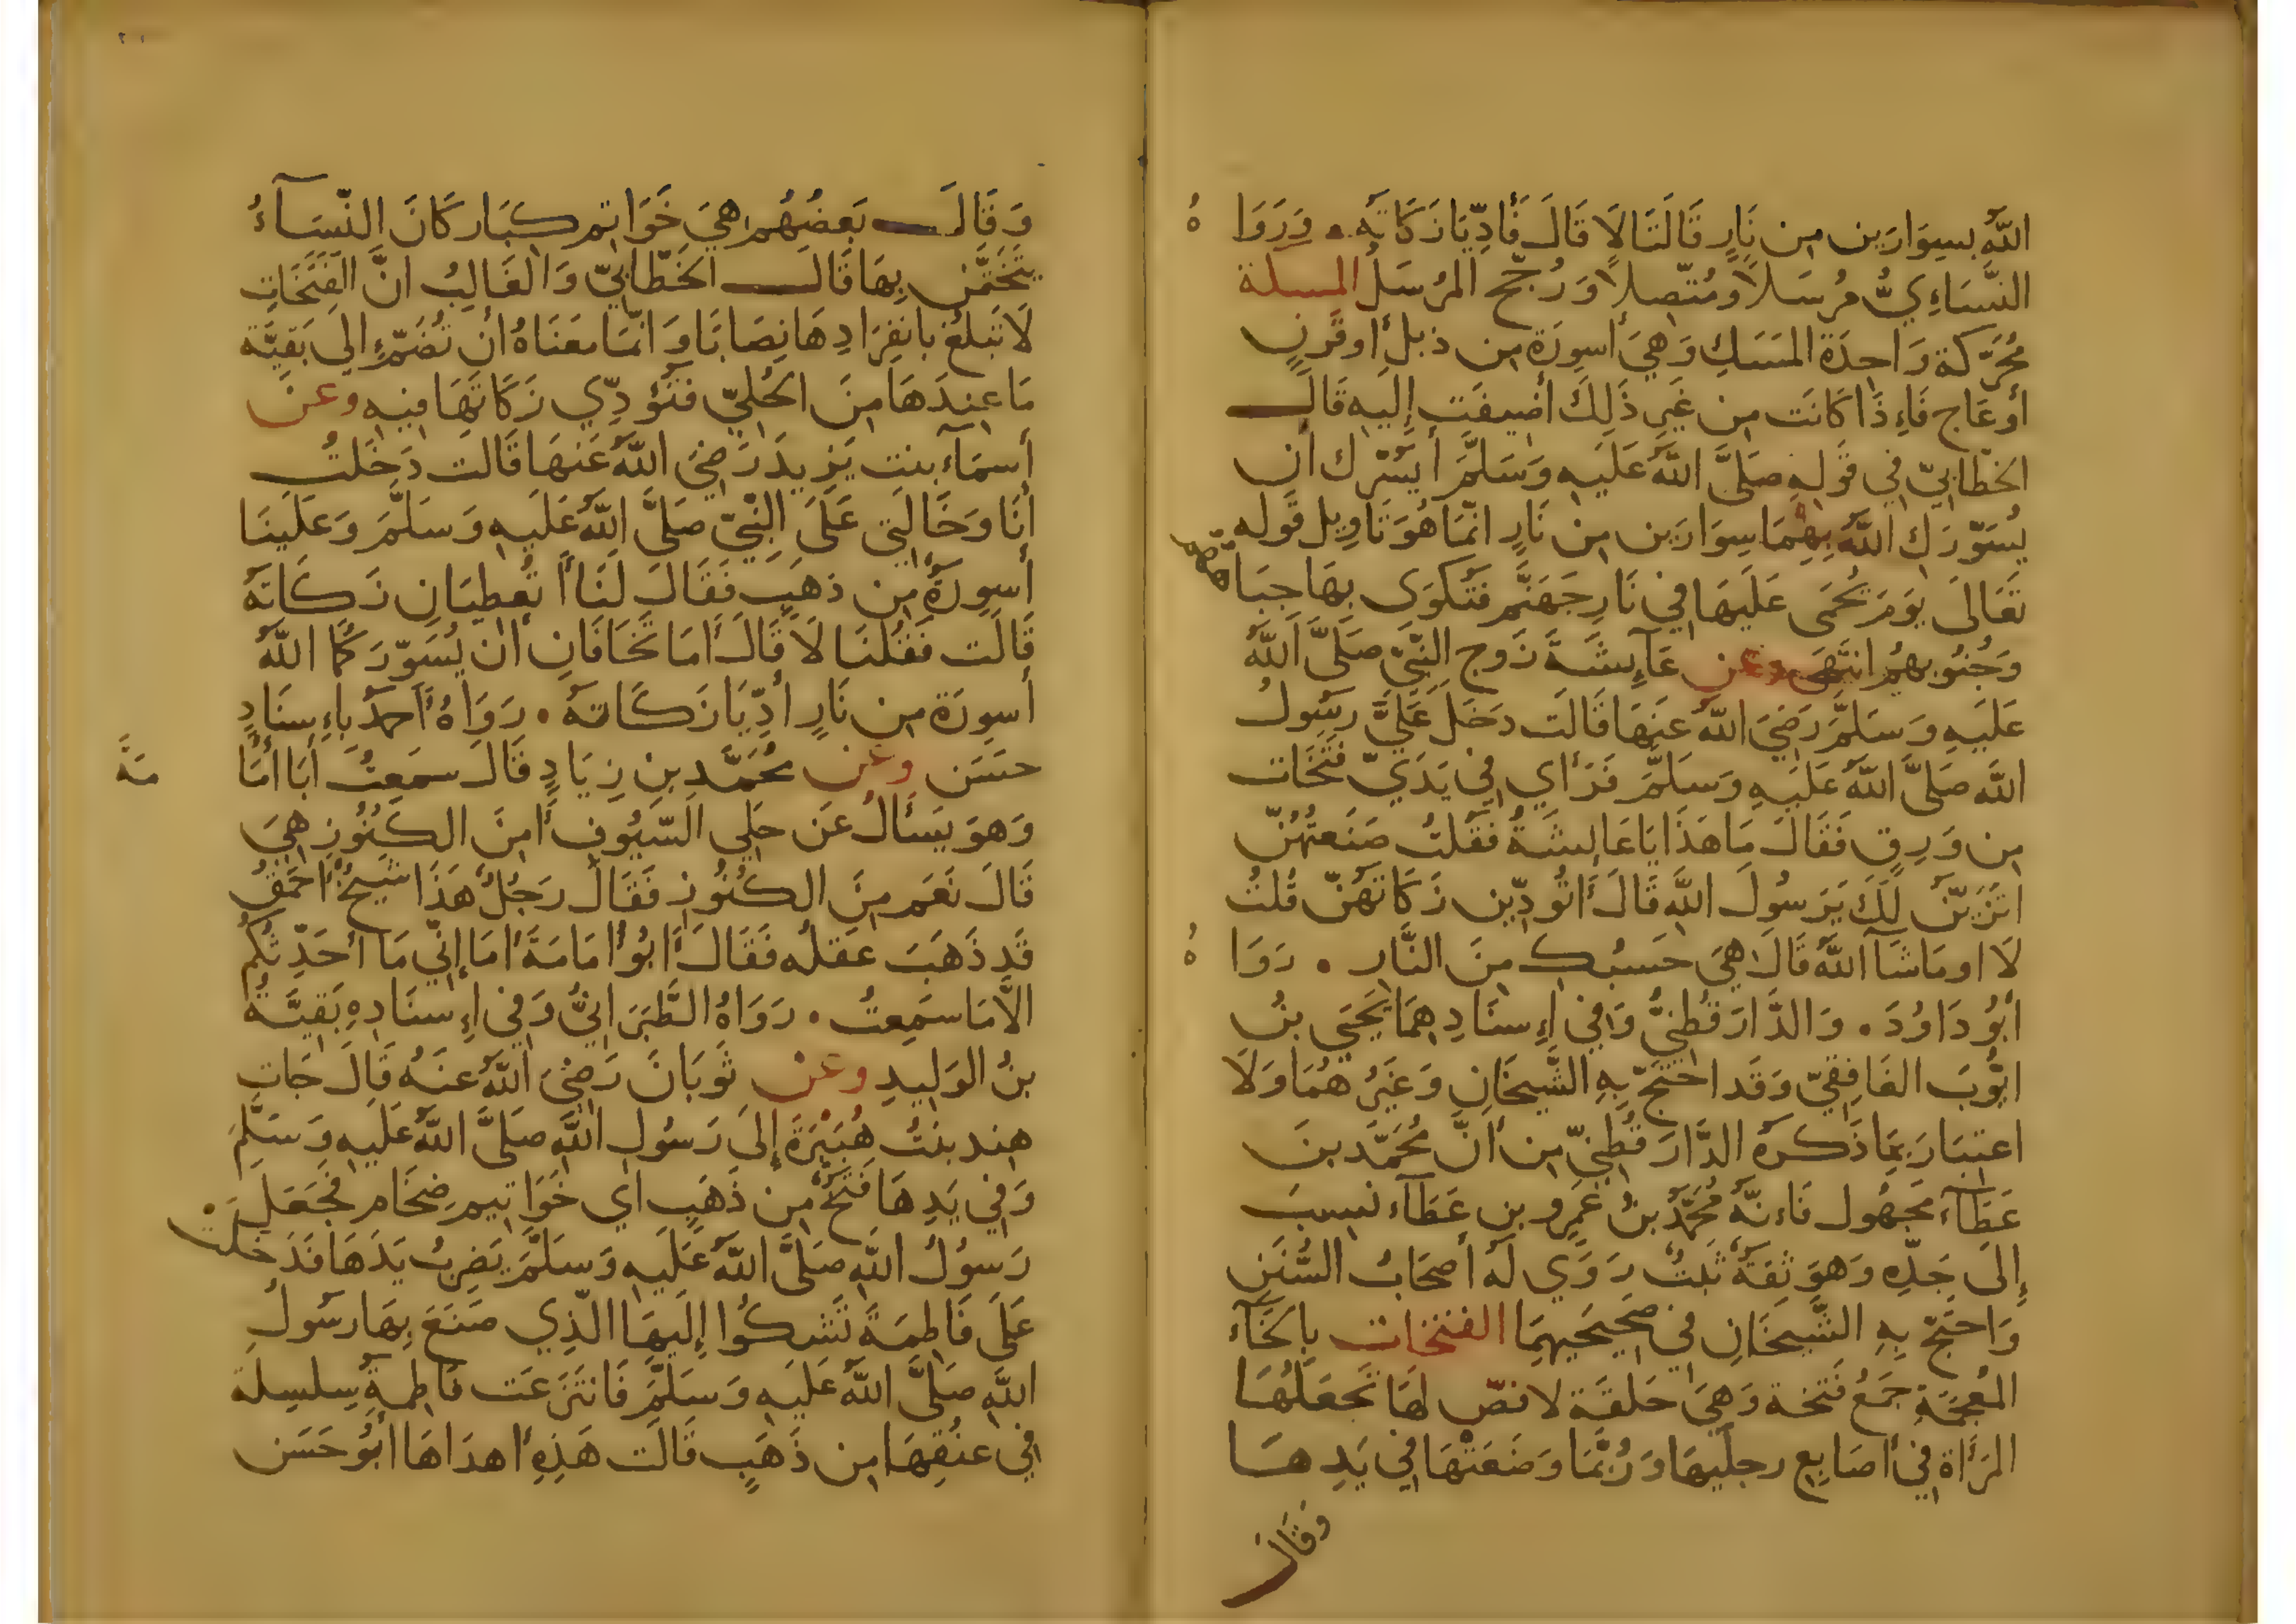 اللَّهُ بسِوَارَين مِن نَارٍ قَالَتَا لَا قَالَ فَأَدِّيَا زَكَاتَهُ . وَرَوَا هُ
النَّسَاءِيُّ مُرسَلاً ومُتّصِلاً وَرُجِّحَ المُرسَلُ المسكة
مُحَرَّكة وَاحِدَة المَسَكِ وَهِيَ أسوِرَة مِن ذبلٍ أو قَرنٍ
أو عَاج فَاءِذَا كَانَت مِن غَيرِ ذَلِكَ أُضِيفَت إِلَيهِ قَالَ
الخطّابيّ في قَولِهِ صَلَّى اللَّهُ عَلَيهِ وَسَلَّمَ أيَسُرُّك ان
يُسَوِّرَكِ اللَّهُ بِهِمَا سِوَارَين مِن نَارٍ انّمَا هُوَ تَاوِيل قَوله
تَعَالَى يَومَ تُحمَى عَلَيهَا فِي نَارِ جَهَنَّم فَتُكوَى بِهَا جِبَا هُهُم
وَجُنُوبهُم انتَهَى وعن عَآئِشَةَ زَوج النَّبِيّ صَلَّى اللَّهُ
عَلَيهِ وَسَلَّمَ رَضِيَ اللَّهُ عَنهَا قَالَت دَخَلَ عَلَيَّ رسَولُ
اللَّه صَلَّى اللَّهُ عَلَيهِ وَسَلَّمَ فَرَأي فِي يَدَيّ فتَخَات
مِن وَرِقٍ فَقَالَ مَا هَذَا يَا عَايِشَةُ فَقُلتُ صَنَعتُهُنّ
اتَزَيّنُ لَكَ يَرَسُولَ اللَّهِ قَالَ أَتُودِّين زَكَاتَهُنّ قُلتُ
لَا اومَاشَآ اللَّهُ قَالَ هِيَ حَسبُكِ مِنَ النَّارِ . رَوَا هُ
أبُو دَاوُدَ . وَالدَّارَقُطنِيُّ وَفِي إِسنَادِهِمَا يَحَيى بنُ
ايُّوبَ الغَافِقِيّ وَقَد احتَجّ بِهِ الشَّيخَانِ وَغَيرُهُمَا وَلَا
اعتبَارَ بِمَا ذَكرهُ الدَّارَقُطِنيّ مِن أنَّ مُحَمَّد بنَ
عَطَآء مَجهُول فَاءنَّهُ مُحَمَّدُ بنُ عَمرو بن عَطَآء نسِبَ
إِلَى جَدِّهِ وَهوَ ثِقَةٌ ثَبتٌ رَوَي لَهُ أصحَابُ السُّنَنِ
وَاحتَجّ بِهِ الشَّيخَانِ فِي صَحِيحَيهِمَا الفتخات بِالخَآء
المُعجَمَة جَمعُ فَتخة وَهِيَ حَلقَة لا فصّ لهَا تَجعَلُهَا
المَرَأة فِي أصَابِعِ رجلَيهَا وَرُبَّمَا وَضَعَتهَا فِي يَدِهَا
وَقَالَ
وَقَالَ بَعضُهُم هِيَ خَوَاتِم كِبَار كَانَ النّسَآءُ
يتَخَتَّمْنَ بِهَا قَالَ الخَطّابِيّ وَالغَالِبُ انَّ الفَتَخَات
لَا تَبلغ بانفِرَادِهَا نِصَابًا وَانّمَا مَعنَاهُ ان تُضَمّ إِلَى بَقِيَّة
مَا عِندَهَا مِنَ الحُلِيّ فتُؤدِّي زَكَاتَهَا فِيهِ وعن
أسمَآء بنت يَزِيدَ رَضِيَ اللَّهُ عَنهَا قَالت دَخَلتُ
أَنَا وَخَالَتِي عَلَى النَّبِيّ صَلَّى اللَّهُ عَلَيهِ وَسَلَّمَ وَعَلَينَا
أسوِرَةٌ مِن ذَهَبٍ فَقَالَ لَنَا أتُعطِيَانِ زَكَاتَهُ
قَالَت فَقُلنَا لَا قَالَ أَمَا تَخَافَانِ ان يُسَوِّرَكُمَا اللَّهُ
أسوِرَة مِن نَارٍ أدِّيَا زَكَاتهُ . رَوَاهُ أحمَد بإِسنَادٍ
حسَن وعن مُحَمَّد بنِ زِيَادٍ قَالَ سمَعِتُ أبَا أمَا مَةَ
وَهوَ يَسأَلُ عَن حَلي السّيُوفِ أمِنَ الكُنُوزِ هِيَ
قَالَ نَعَم مِنَ الكُنُوزِ فَقَالَ رَجُلٌ هَذَا شَيخٌ أحمَقُ
قَد ذَهَبَ عَقلُه فَقَالَ أبُو أُمَامَةَ أمَا إِنّي مَا أحَدِّثُكُم
الَّا مَا سَمِعتُ . رَوَاهُ الطَّبَرَانِيُّ وَفِي إِسنَادِهِ بَقِيَّةُ
بنُ الوَلِيدِ وعن ثَوبَانَ رَضِيَ اللَّهُ عنهُ قَالَ جَات
هِند بنتُ هُبَيرَةَ إِلَى رَسُولِ اللَّهِ صَلَّى اللَّهُ عَلَيهِ وَسَلَّمَ
وَفِي يَدِهَا فَتَخٌ مِن ذَهَبٍ أي خَوَاتِيم ضِخَام فَجَعَلَ
رَسُولُ اللَّهِ صَلَّى اللَّهُ عَلَيهِ وَسَلَّمَ يَضرِبُ يَدَهَا فَدَخَلَت
عَلَى فَاطِمَةَ تَشكُوا إِلَيهَا الَّذِي صَنَعَ بِهَا رسَولُ
اللَّهِ صَلَّى اللَّهُ عَلَيهِ وَسَلَّمَ فَانتَزَعَت فَاطِمةُ سِلسِلة
فِي عنُقِهَا مِن ذَهَبٍ قَالَت هَذِهِ أهدَاهَا أبُو حَسَن